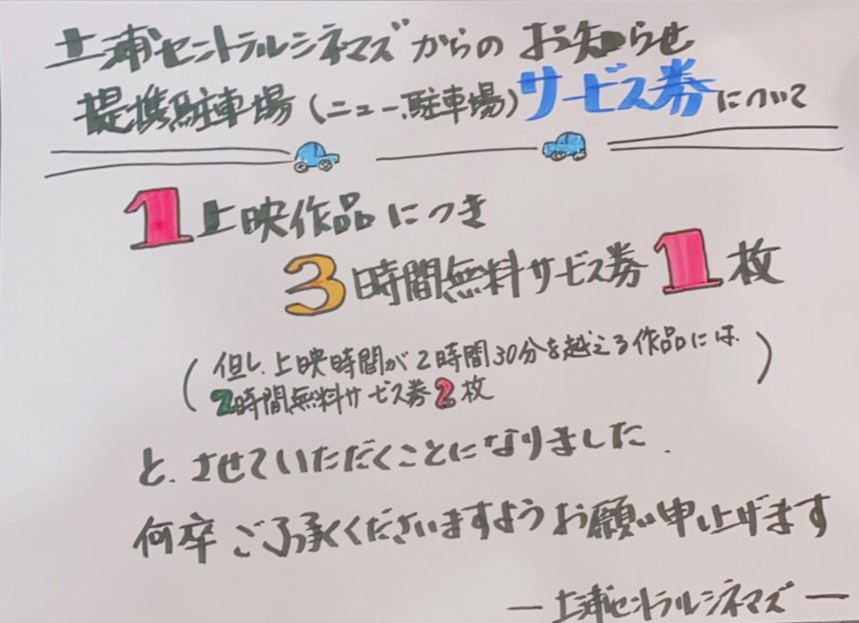 土浦セントラルシネマズからのお知らせ
提携駐車場(ニュー駐車場)サービス券について
1上映作品につき
3時間無料サービス券1枚
(但し、上映時間が2時間30分を越える作品には、
2時間無料サービス券2枚)
と、させていただくことになりました。
何卒ご了承くださいますようお願い申し上げます
―土浦セントラルシネマズ―